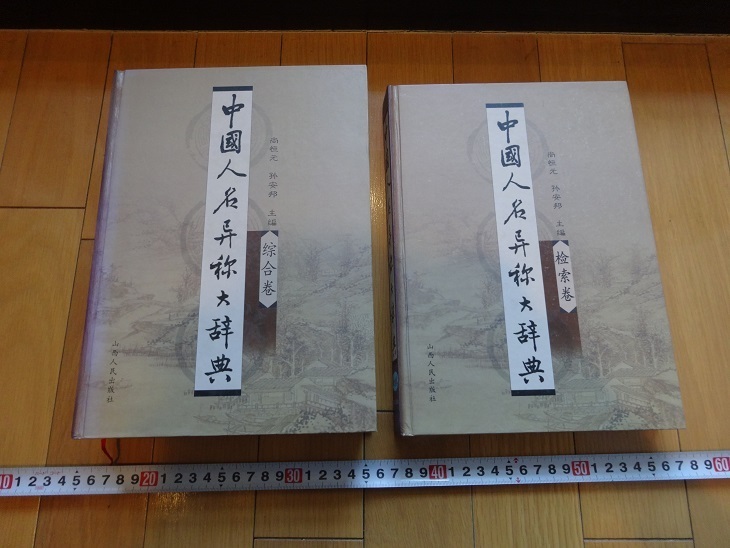 中國人名异称大辞典
尚恒元 孙安邦 主编
综合卷
山西人民出版社
中國人名异称大辞典
尚恒元 孙安邦 主编
检索卷
山西人民出版社
10 1 2 3 4 5 6 7 8 9 20 1 2 3 4 5 6 7 8 9 30 1 2 3 4 5 6 7 8 9 40 1 2 3 4 5 6 7 8 9 50 1 2 3 4 5 6 7 8 9 60